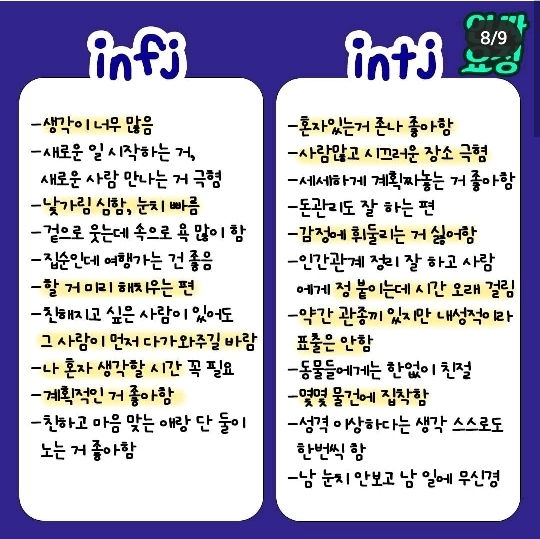 infj
-생각이 너무 많음
-새로운 일 시작하는 거,
새로운 사람 만나는 거 극혐
-낯가림 심함, 눈치 빠름
-겉으로 웃는데 속으로 욕 많이 함
-집순인데 여행가는 건 좋음
-할 거 미리 해치우는 편
-친해지고 싶은 사람이 있어도
그 사람이 먼저 다가와주길 바람
-나 혼자 생각할 시간 꼭 필요
-계획적인 거 좋아함
-친하고 마음 맞는 애랑 단 둘이
노는 거 좋아함
intj
8/9
-혼자있는거 존나 좋아함
-사람많고 시끄러운 장소 극혐
-세세하게 계획짜놓는 거 좋아함
-돈관리도 잘 하는 편
-감정에 휘둘리는 거 싫어함
-인간관계 정리 잘 하고 사람
에게 정 붙이는데 시간 오래 걸림
-약간 관종끼 있지만 내성적이라
표출은 안함
-동물들에게는 한없이 친절
-몇몇 물건에 집착함
-성격 이상하다는 생각 스스로도
한번씩 함
-남 눈치 안보고 남 일에 무신경